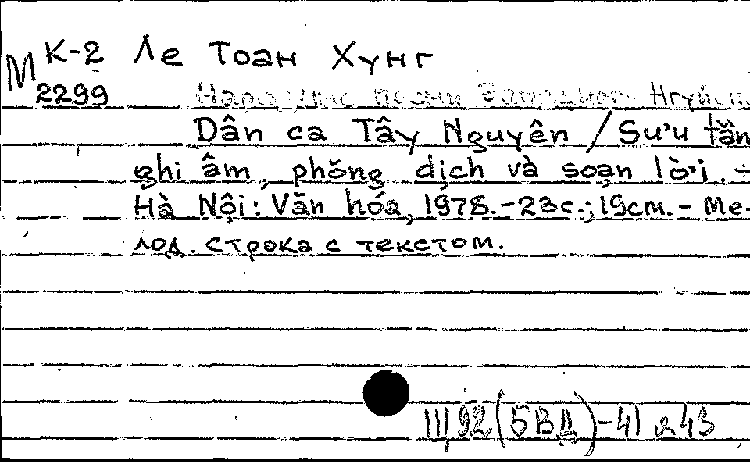 М К-2 Ле Тоан Хунг
2299 Народные песни
Dân ca Tây Nguyên / Sưu tần
ghi âm, phỏng dịch và soạn lời. -
Hà Nội: Văn hóa, 1978. - 23с.; 19см. - Ме-
лод. строка с текстом.
III,92(5ВД)-41 а43